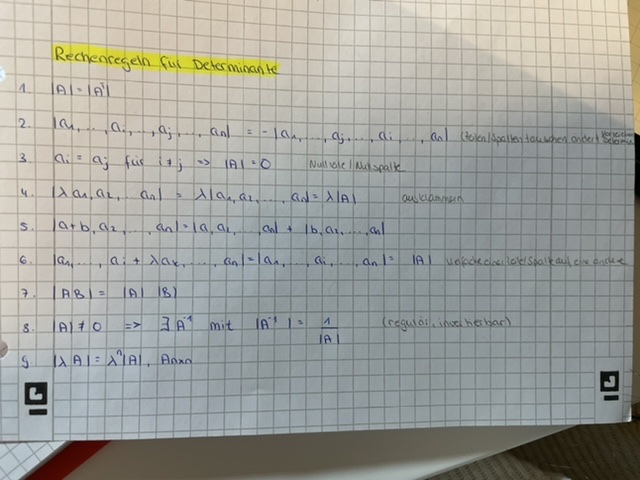 Rechenregeln für Determinante
1. |A| = |Aᵀ|
2. |a₁, ..., aᵢ, ..., aⱼ, ..., aₙ| = -|a₁, ..., aⱼ, ..., aᵢ, ..., aₙ| (Zeilen/Spalten tauschen ändert Vorzeichen
3. aᵢ = aⱼ für i ≠ j => |A| = 0 Nullzeile/Nullspalte
4. |λa₁, a₂, ... aₙ| = λ|a₁, a₂, ..., aₙ| = λ|A| ausklammern
5. |a+b, a₂, ... aₙ| = |a, a₂, ..., aₙ| + |b, a₂, ..., aₙ|
6. |a₁, ..., aᵢ + λaₖ, ..., aₙ| = |a₁, ..., aᵢ, ..., aₙ| = |A| auf die andere
7. |AB| = |A| |B|
8. |A| ≠ 0 => ∃ A⁻¹ mit |A⁻¹| = 1/|A| (regulär, invertierbar)
9. |λA| = λⁿ|A|, Anxn